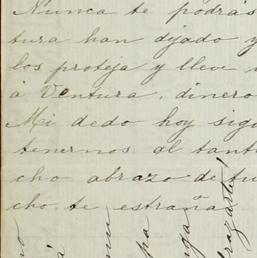 Nunca te podrás
tura han dejado y
los proteja y lleve
á Ventura, dinero
Mi dedo hoy sigu
tenernos al tant
cho abrazo de tu
cho te estraña